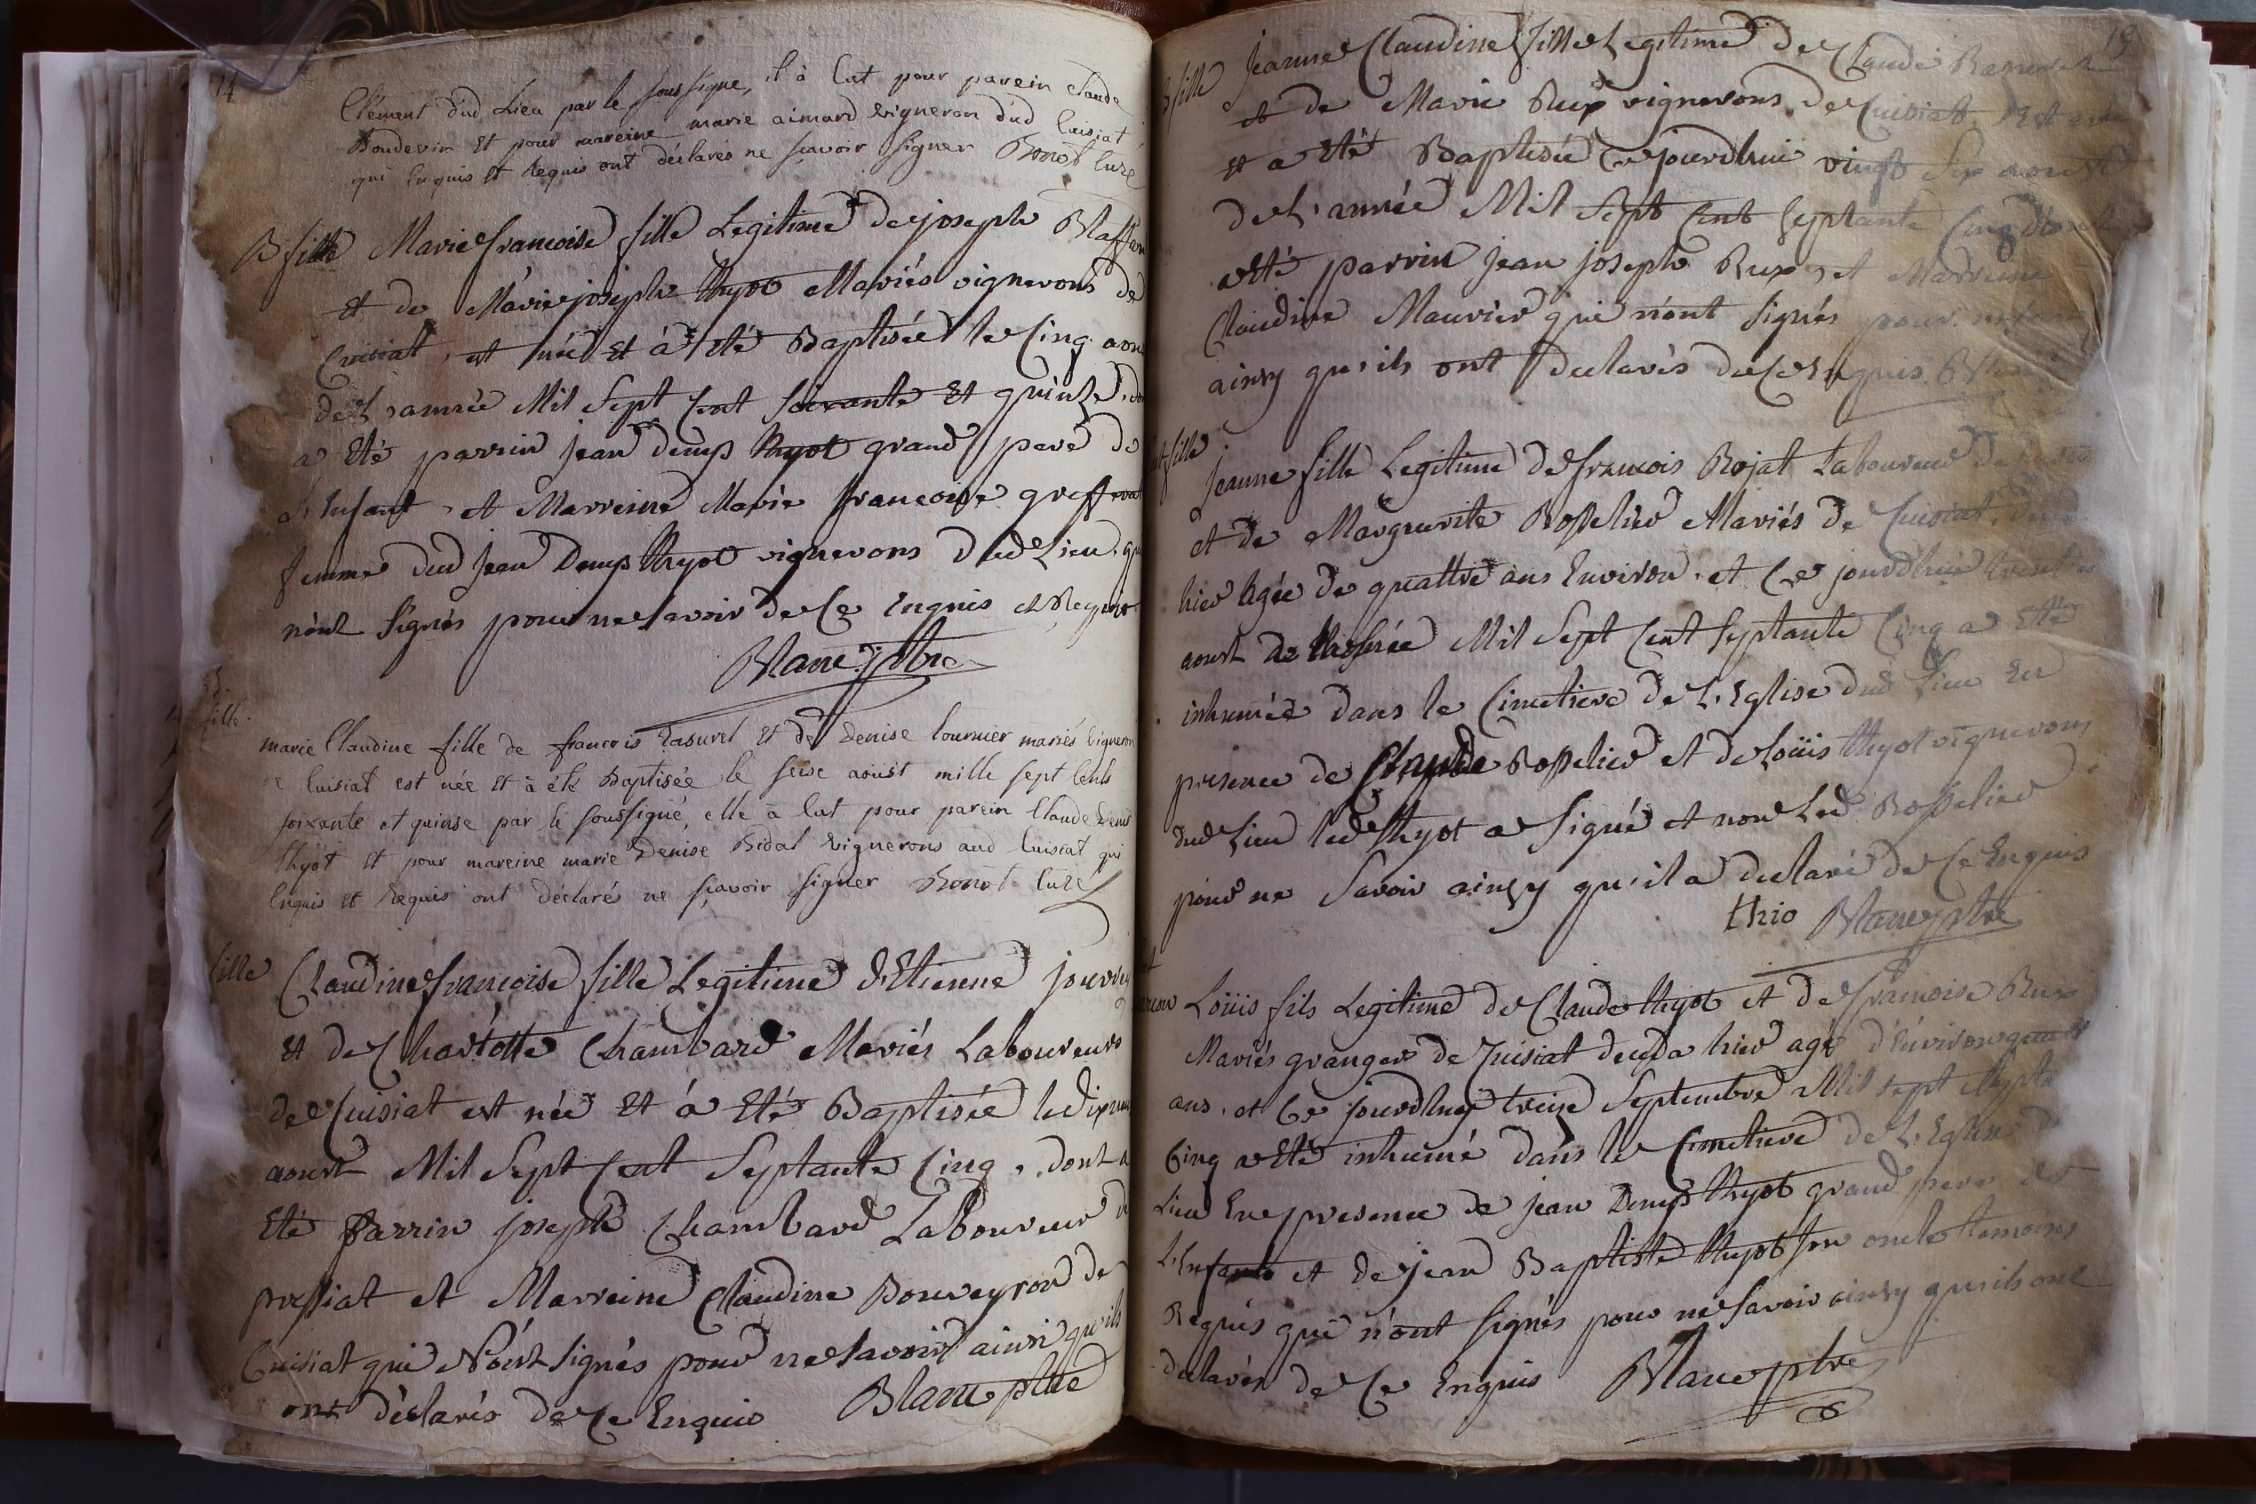 14
Clément dud Lieu par le soussigné, il à Eut pour parein claude
Boudevin Et pour mareine marie aimard vigneron dud Cuisiat
qui Enquis Et Requis ont déclarés ne sçavoir signer Bonot Curé
B fille Marie francoise fille Legitime de joseph
et de Marie joseph thyot Mariés vignerons de
Cuisiat, est née Et à Eté Baptisée le Cinq aou
de L'année Mil Sept Cent Soixante Et quinze, do
a Eté parrin jean denys thyot grand pere de
L'Enfant, et Marreine Marie francoise
femme dud jean Denys thyot vignerons dud Lieu, qu
n'ont signés pour ne Savoir de Ce Enquis et Requis
Blanc ptre
fille
marie Claudine fille de francois Pasuret Et de Denise tournier mariés vigneron
de Cuisiat est née Et à été Baptisée le seise aoust mille sept Cents
soixante et quinse par le soussigné, elle à Eut pour parein Claude Denis
thyot Et pour mareine marie Denise Bidal vignerons aud Cuisiat qui
Enquis Et Requis ont déclaré ne sçavoir signer Bonot Curé
fille Claudine francoise fille Legitime d'Etienne
Et de Charlotte Chambard Mariés Laboureurs
de Cuisiat est née Et à Eté Baptisée le dix
aoust Mil Sept Cent Septante Cinq, dont a
Eté Parrin joseph Chambard Laboureur d
pressiat et Marreine Claudine Bouveyron de
Cuisiat qui N'ont signés pour ne Savoir ainsi qu'ils
ont déclarés de Ce Enquis Blanc ptre
15
B fille Jeanne Claudine fille Legitime de Claude
et de Marie Rux vignerons de Cuisiat Est née
et a Eté Baptisée Ce jourdhui vingt Six aoust
de L'année Mil Sept Cent Septante Cinq dont
a Eté parrin jean joseph Rux, et Marreine
Claudine Maurier qui n'ont signés pour ne savoir
ainsy qu'ils ont declarés de Ce Enquis. Blanc
fille
Jeanne fille Legitime de francois Rojat Laboureur de
et de Marguerite Rosselier Mariés de Cuisiat,
hier Agée de quattre ans Environ, et Ce jourdhui
aoust de L'année Mil Sept Cent Septante Cinq a Eté
inhumée dans le Cimetiere de L'Eglise dud Lieu En
presence de Claude Rosselier et de Loüis thyot vignerons
dud Lieu led thyot a signé et non Led Rosselier
pour ne Savoir ainsy qu'il a declaré de Ce Enquis
thio Blanc ptre
Loüis fils Legitime de Claude thyot et de francoise Rux
Mariés granger de Cuisiat decéda hier agé d'Environ
ans, et Ce jourdhuy treize Septembre Mil sept Septante
Cinq a Eté inhumé dans le Cimetiere de L'Eglise d
Lieu En presence de jean Denys thyot grand pere de
L'Enfant et de jean Baptiste thyot son oncle temoins
Requis qui n'ont signés pour ne Savoir ainsy qu'ils ont
declarés de Ce Enquis Blanc ptre